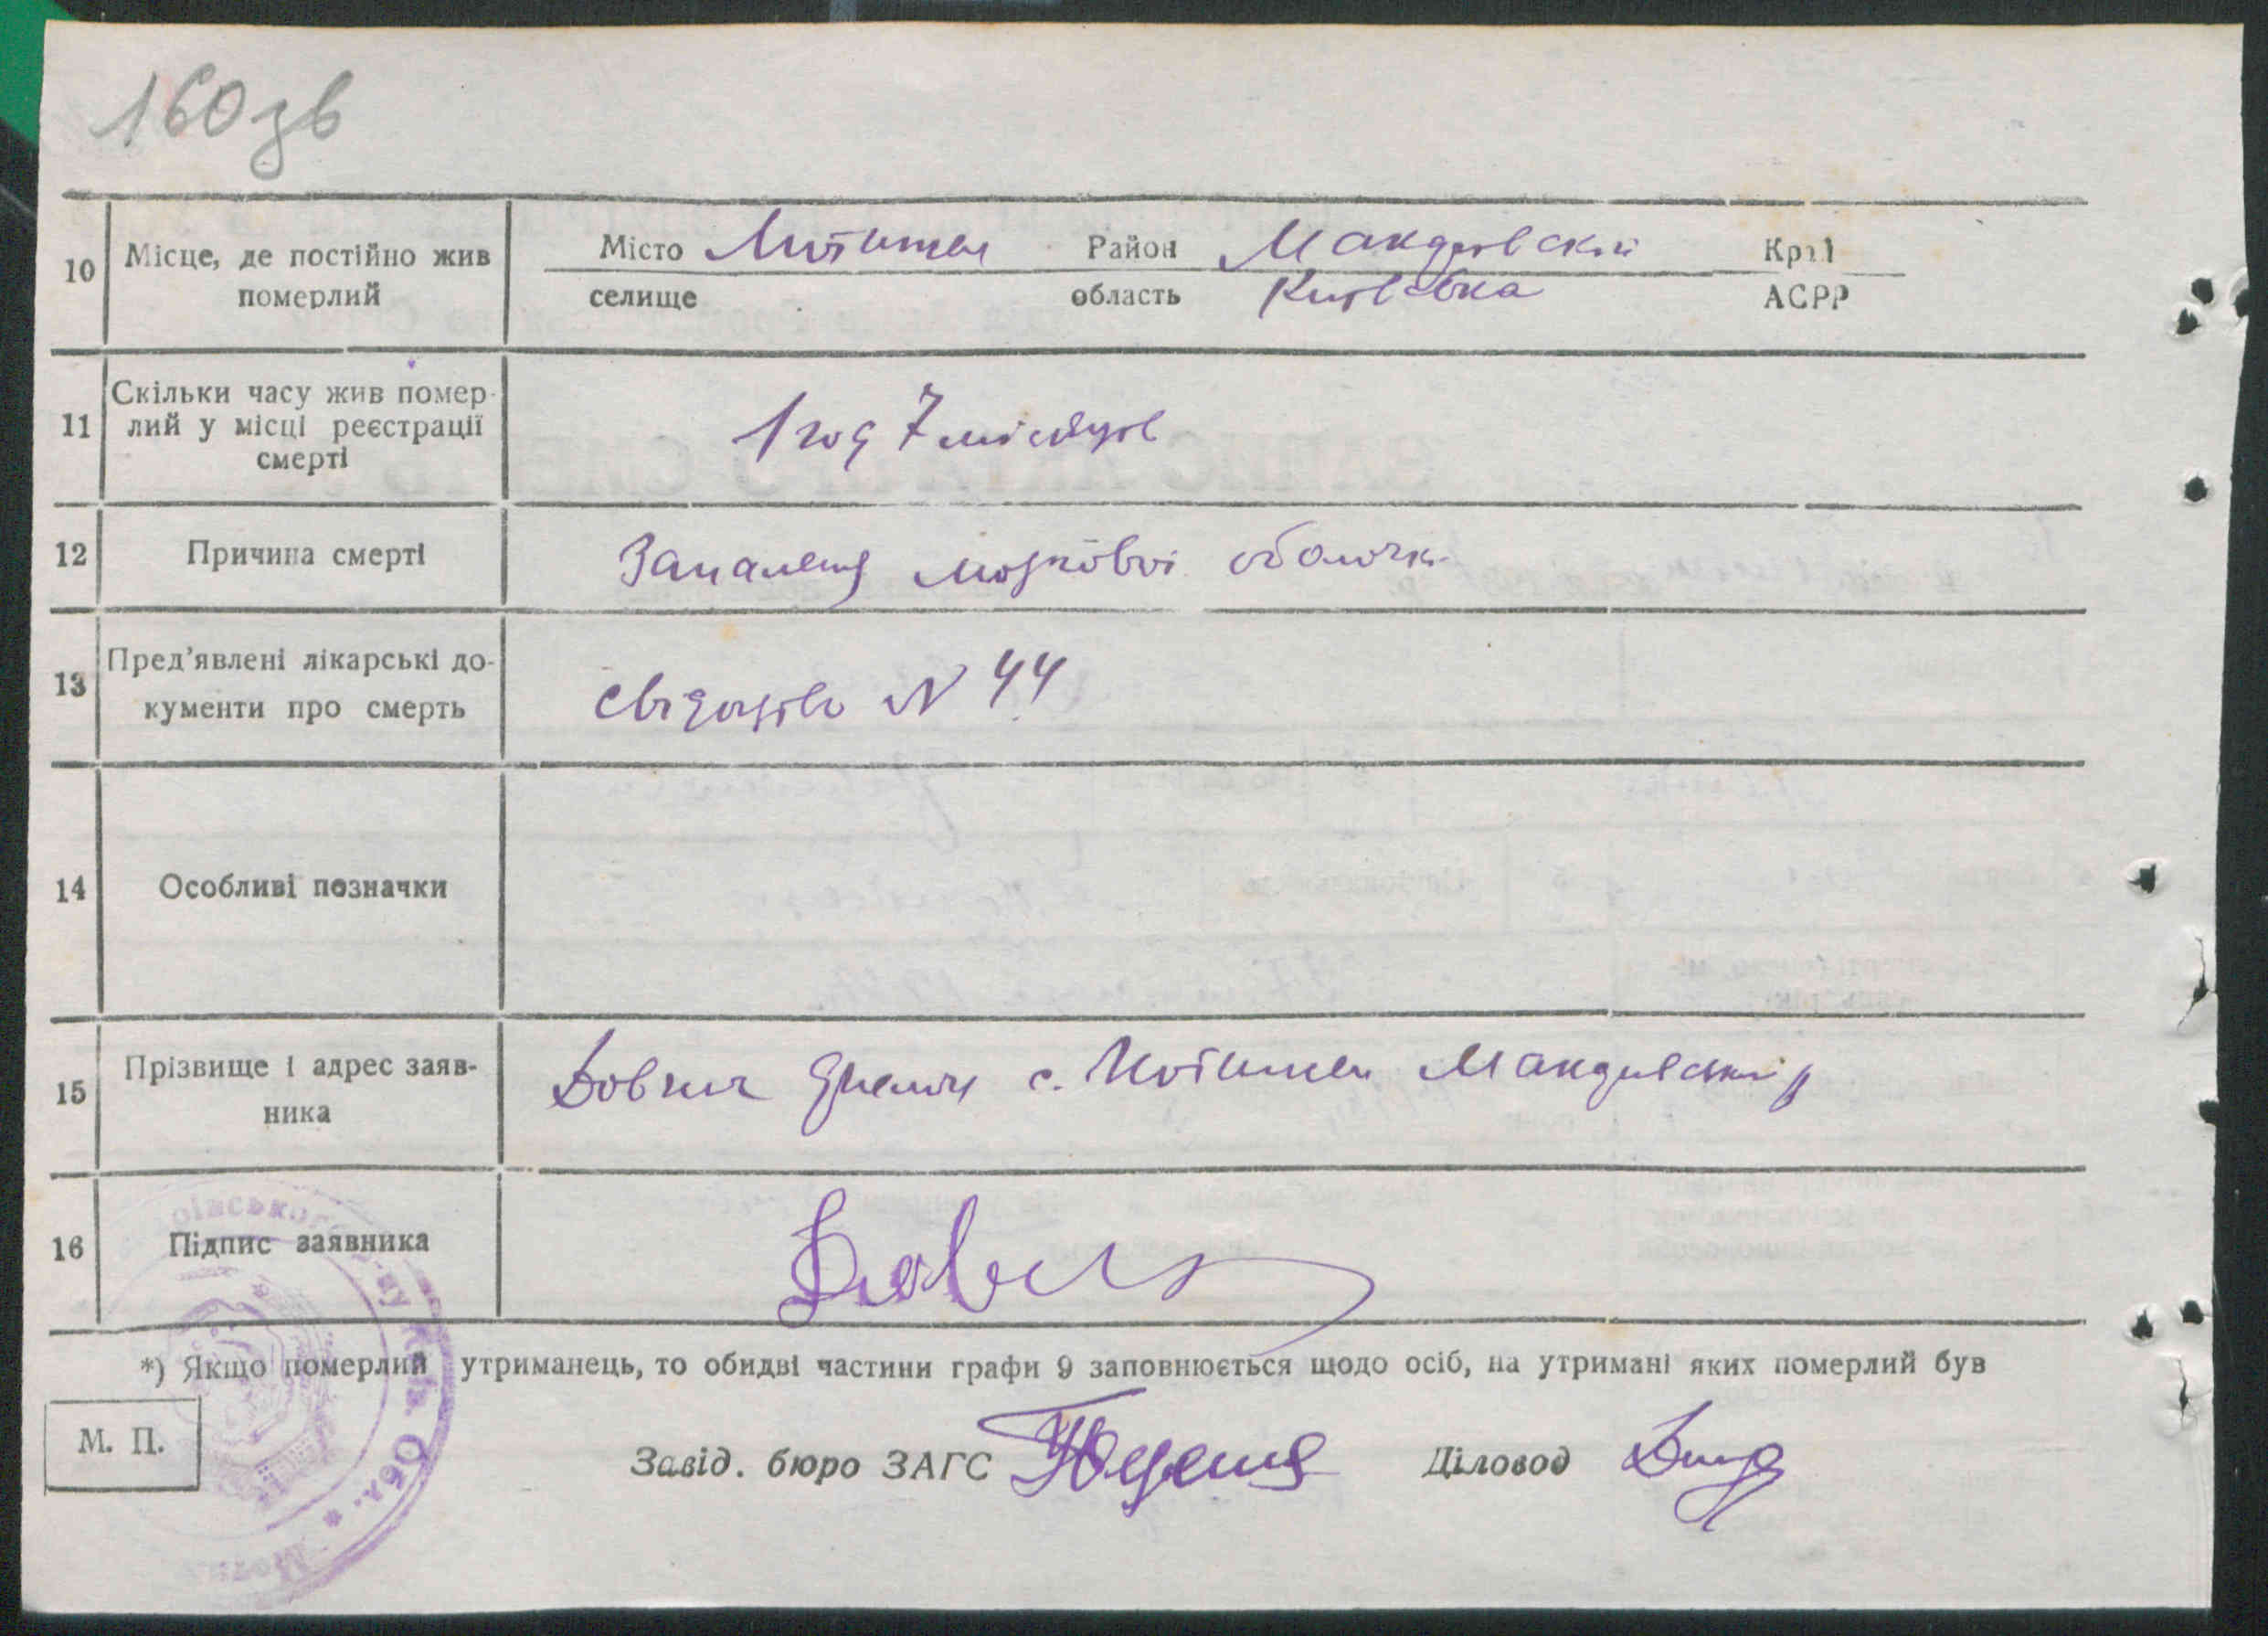 160 зв
10 Місце, де постійно жив померлий
Місто Мотижен Район Макарівский Край
селище область Київська АСРР
11 Скільки часу жив помер-
лий у місці реєстрації
смерті
1 год 7 місяців
12 Причина смерті
Запаленя мозкової оболочк
13 Пред'явлені лікарські до-
кументи про смерть
свідоцтво N 44
14 Особливі позначки
15 Прізвище і адрес заяв-
ника
Вовкич с. Мотижен Макарівський р
16 Підпис заявника
*) Якщо померлий утриманець, то обидві частини графи 9 заповнюється щодо осіб, на утримані яких померлий був
М. П.
Завід. бюро ЗАГС Діловод